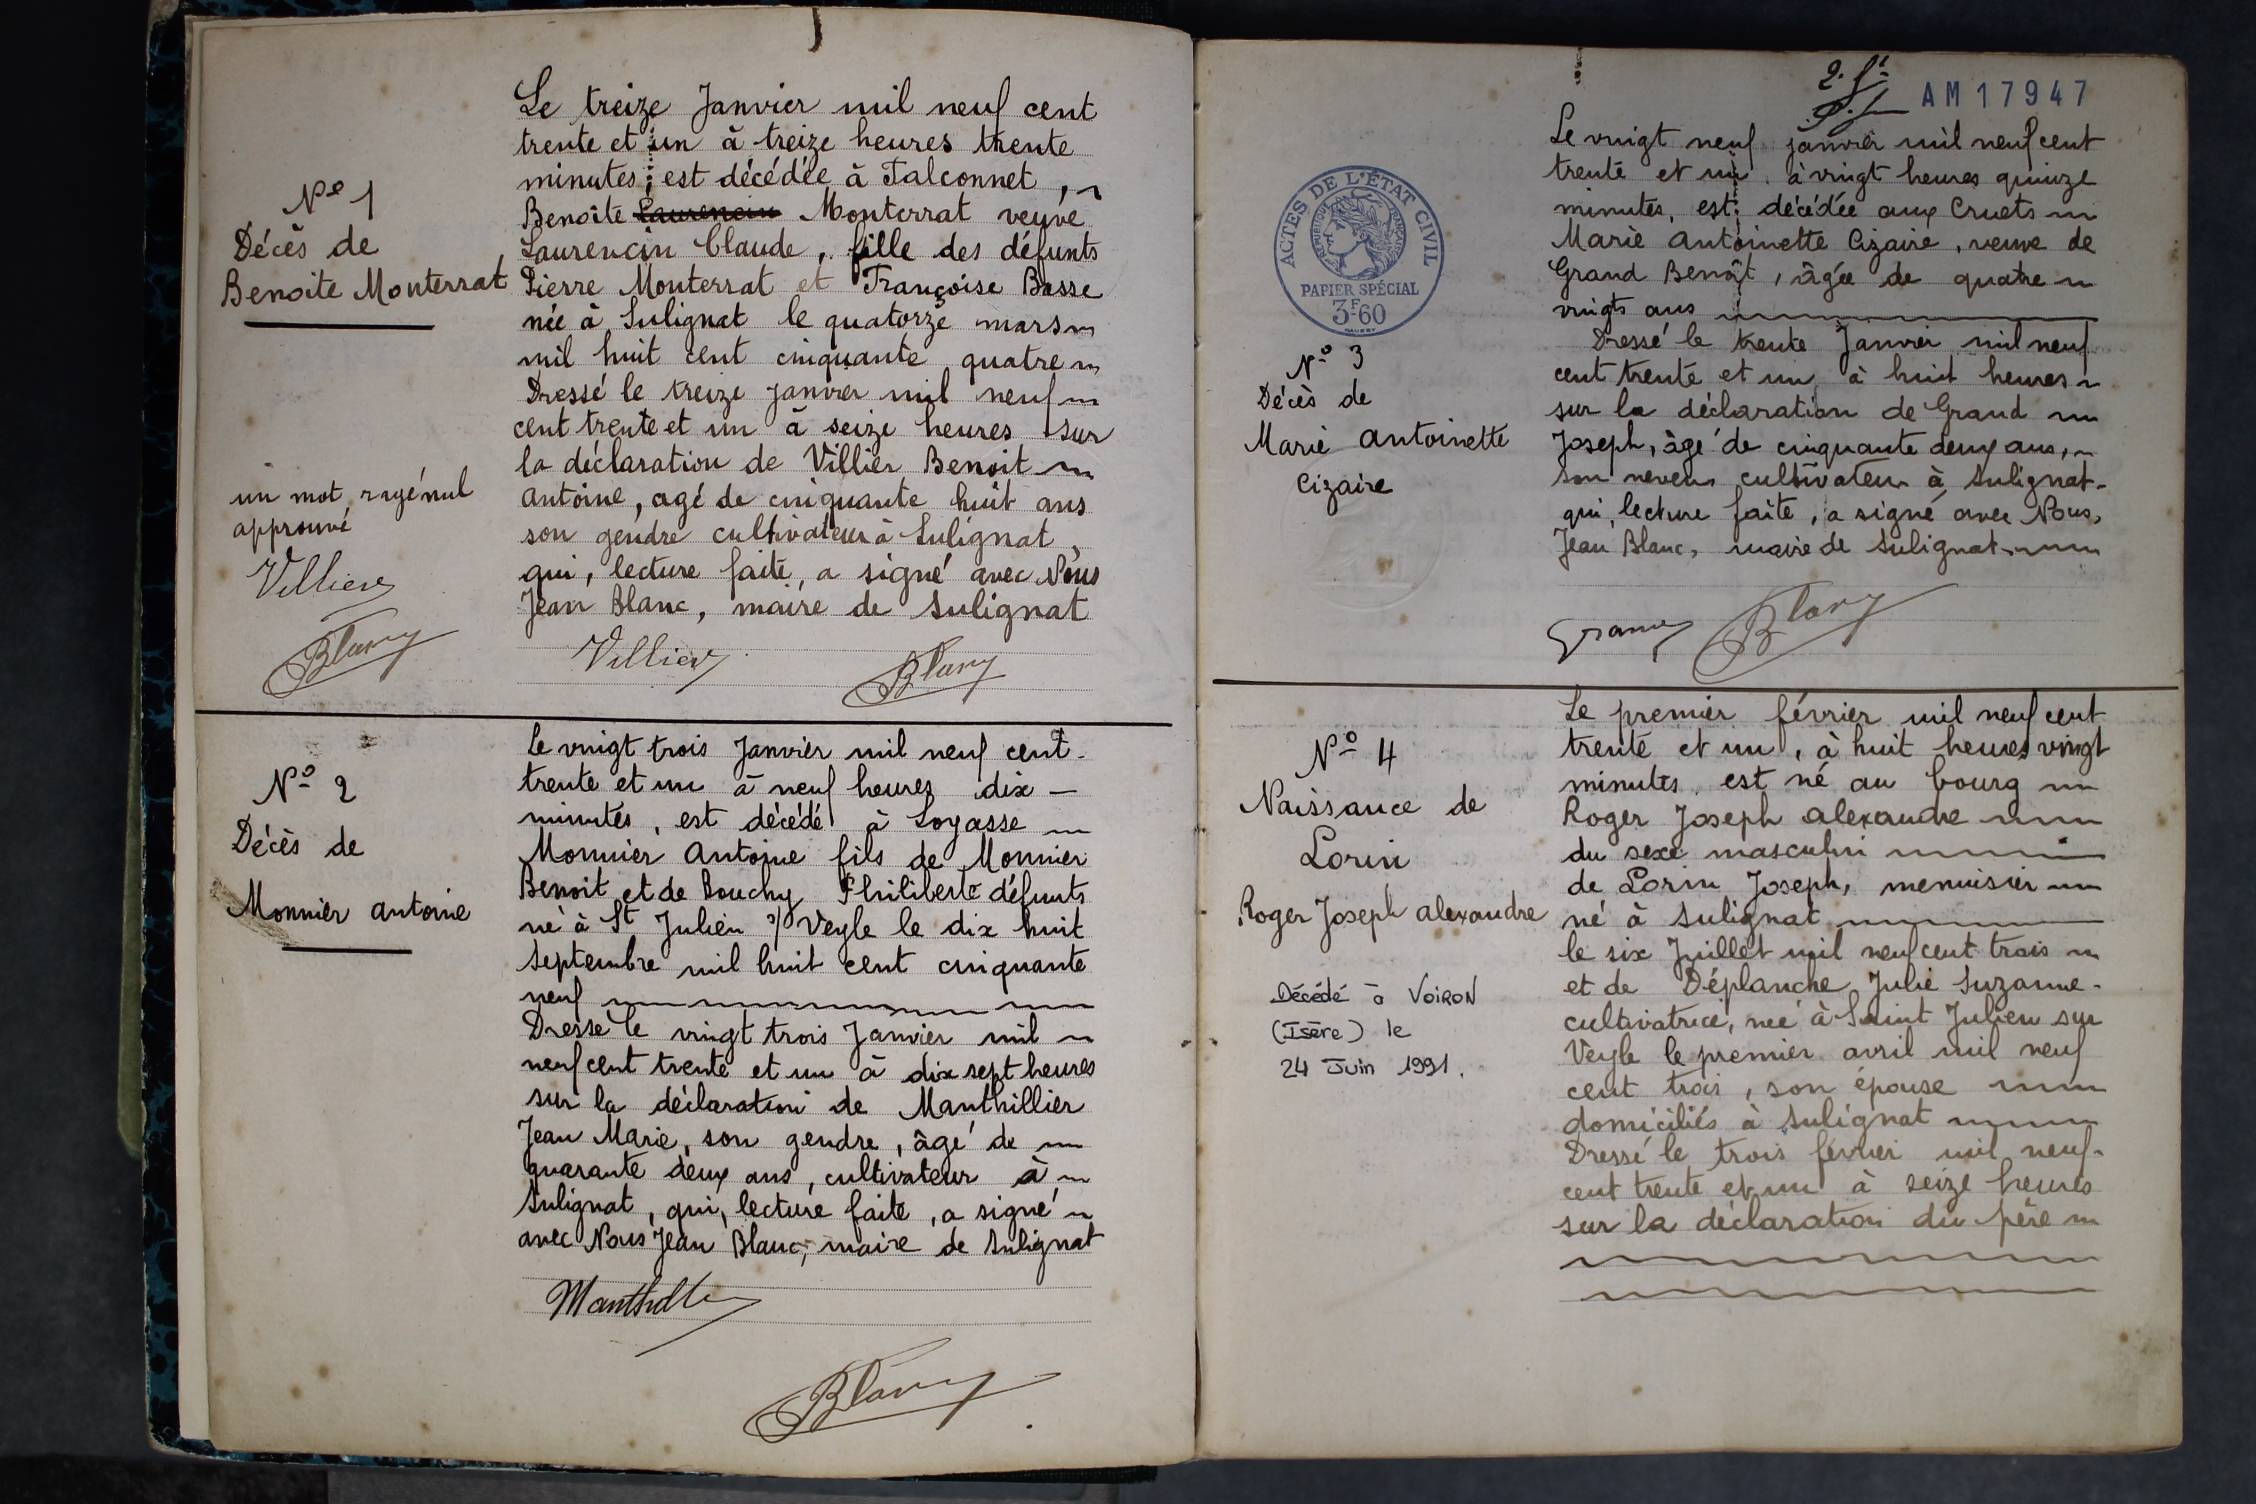 Nº 1
Décès de
Benoite Monterrat
un mot rayé nul
approuvé
Villier
Blanc
Le treize Janvier mil neuf cent
trente et un à treize heures trente
minutes, est décédée à Falconnet,
Benoîte Laurencin Monterrat veuve
Laurencin Claude, fille des défunts
Pierre Monterrat et Françoise Basse
née à Sulignat le quatorze mars
mil huit cent cinquante quatre
Dressé le treize janvier mil neuf
cent trente et un à seize heures sur
la déclaration de Villier Benoit
Antoine, agé de cinquante huit ans
son gendre cultivateur à Sulignat,
qui, lecture faite, a signé avec Nous
Jean Blanc, maire de Sulignat
Villier
Blanc
Nº 2
Décès de
Monnier antoine
Le vingt trois Janvier mil neuf cent
trente et un à neuf heures dix
minutes, est décédé à Loyasse
Monnier Antoine fils de Monnier
Benoit et de Bouchy Philiberte défunts
né à St Julien s/ Veyle le dix huit
Septembre mil huit cent cinquante
neuf
Dressé le vingt trois Janvier mil
neuf cent trente et un à dix sept heures
sur la déclaration de Manthillier
Jean Marie, son gendre, âgé de
quarante deux ans, cultivateur à
Sulignat, qui, lecture faite, a signé
avec Nous Jean Blanc, maire de Sulignat
Blanc
AM17947
ACTES DE L'ÉTAT CIVIL
RÉPUBLIQUE FRANÇAISE
PAPIER SPÉCIAL
3F60
Nº 3
Décès de
Marie antoinette
Cizaire
Le vingt neuf janvier mil neuf cent
trente et un à vingt heures quinze
minutes, est décédée aux Cruets
Marie Antoinette Cizaire, veuve de
Grand Benoît, âgée de quatre
vingts ans
Dressé le trente Janvier mil neuf
cent trente et un à huit heures
sur la déclaration de Grand
Joseph, âgé de cinquante deux ans,
son neveu cultivateur à Sulignat
qui, lecture faite, a signé avec Nous,
Jean Blanc, maire de Sulignat
Grand
Blanc
Nº 4
Naissance de
Lorin
Roger Joseph alexandre
Décédé à VOIRON
(Isère) le
24 Juin 1991.
Le premier février mil neuf cent
trente et un, à huit heures vingt
minutes est né au bourg
Roger Joseph alexandre
du sexe masculin
de Lorin Joseph, menuisier
né à Sulignat
le six Juillet mil neuf cent trois
et de Déplanche Julie Suzanne
cultivatrice, née à Saint Julien sur
Veyle le premier avril mil neuf
cent trois, son épouse
domiciliés à Sulignat
Dressé le trois février mil neuf
cent trente et un à seize heures
sur la déclaration du père